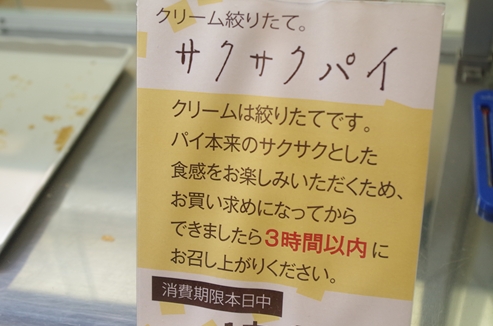 クリーム絞りたて。
サクサクパイ
クリームは絞りたてです。
パイ本来のサクサクとした
食感をお楽しみいただくため、
お買い求めになってから
できましたら3時間以内に
お召し上がりください。
消費期限本日中